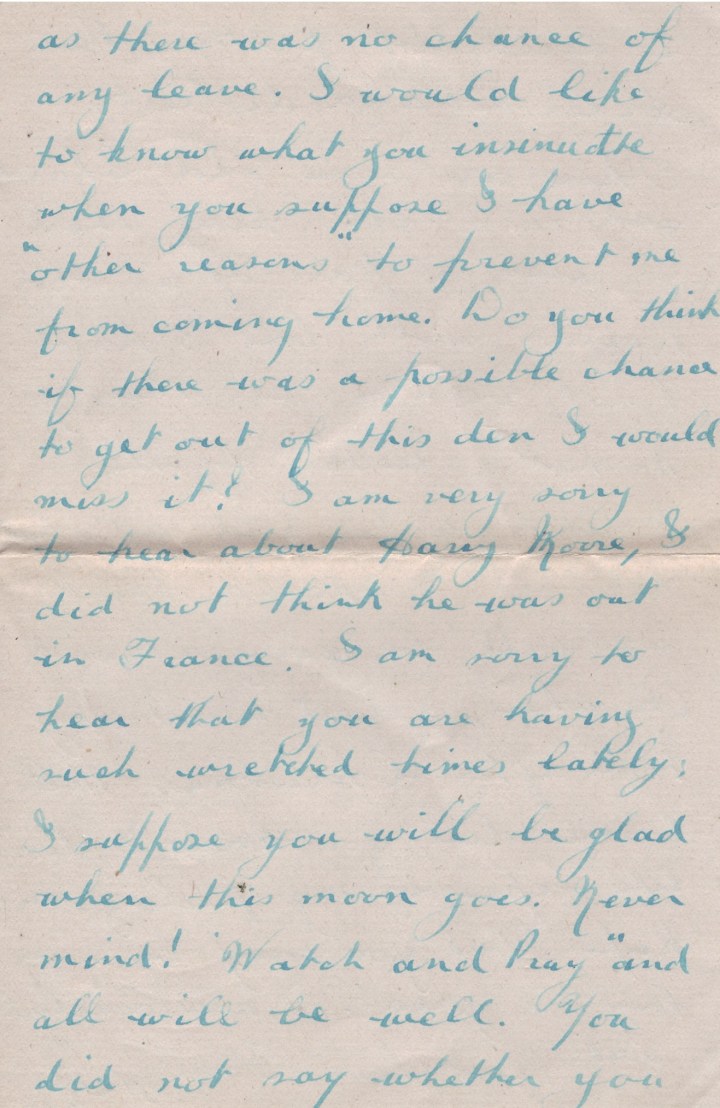 as there was no chance of
any leave. I would like
to know what you insinuate
when you suppose I have
"other reasons" to prevent me
from coming home. Do you think
if there was a possible chance
to get out of this den I would
miss it? I am very sorry
to hear about Harry Moore, I
did not think he was out
in France. I am sorry to
hear that you are having
such wretched times lately,
I suppose you will be glad
when this moon goes. Never
mind! "Watch and Pray" and
all will be well. You
did not say whether you